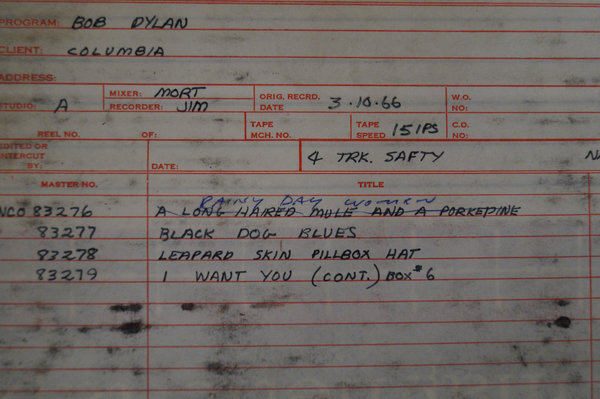 PROGRAM: BOB DYLAN
CLIENT: COLUMBIA
ADDRESS:
STUDIO: A MIXER: MORT ORIG. RECRD. DATE 3.10.66 W.O. NO:
RECORDER: JIM
REEL NO. OF: TAPE MCH. NO. TAPE SPEED 15 IPS C.O. NO:
EDITED OR INTERCUT BY: DATE: 4 TRK. SAFTY
MASTER NO. TITLE
RAINY DAY WOMEN
NCO 83276 A LONG HAIRED MULE AND A PORKEPINE
83277 BLACK DOG BLUES
83278 LEAPARD SKIN PILLBOX HAT
83279 I WANT YOU (CONT.) BOX #6